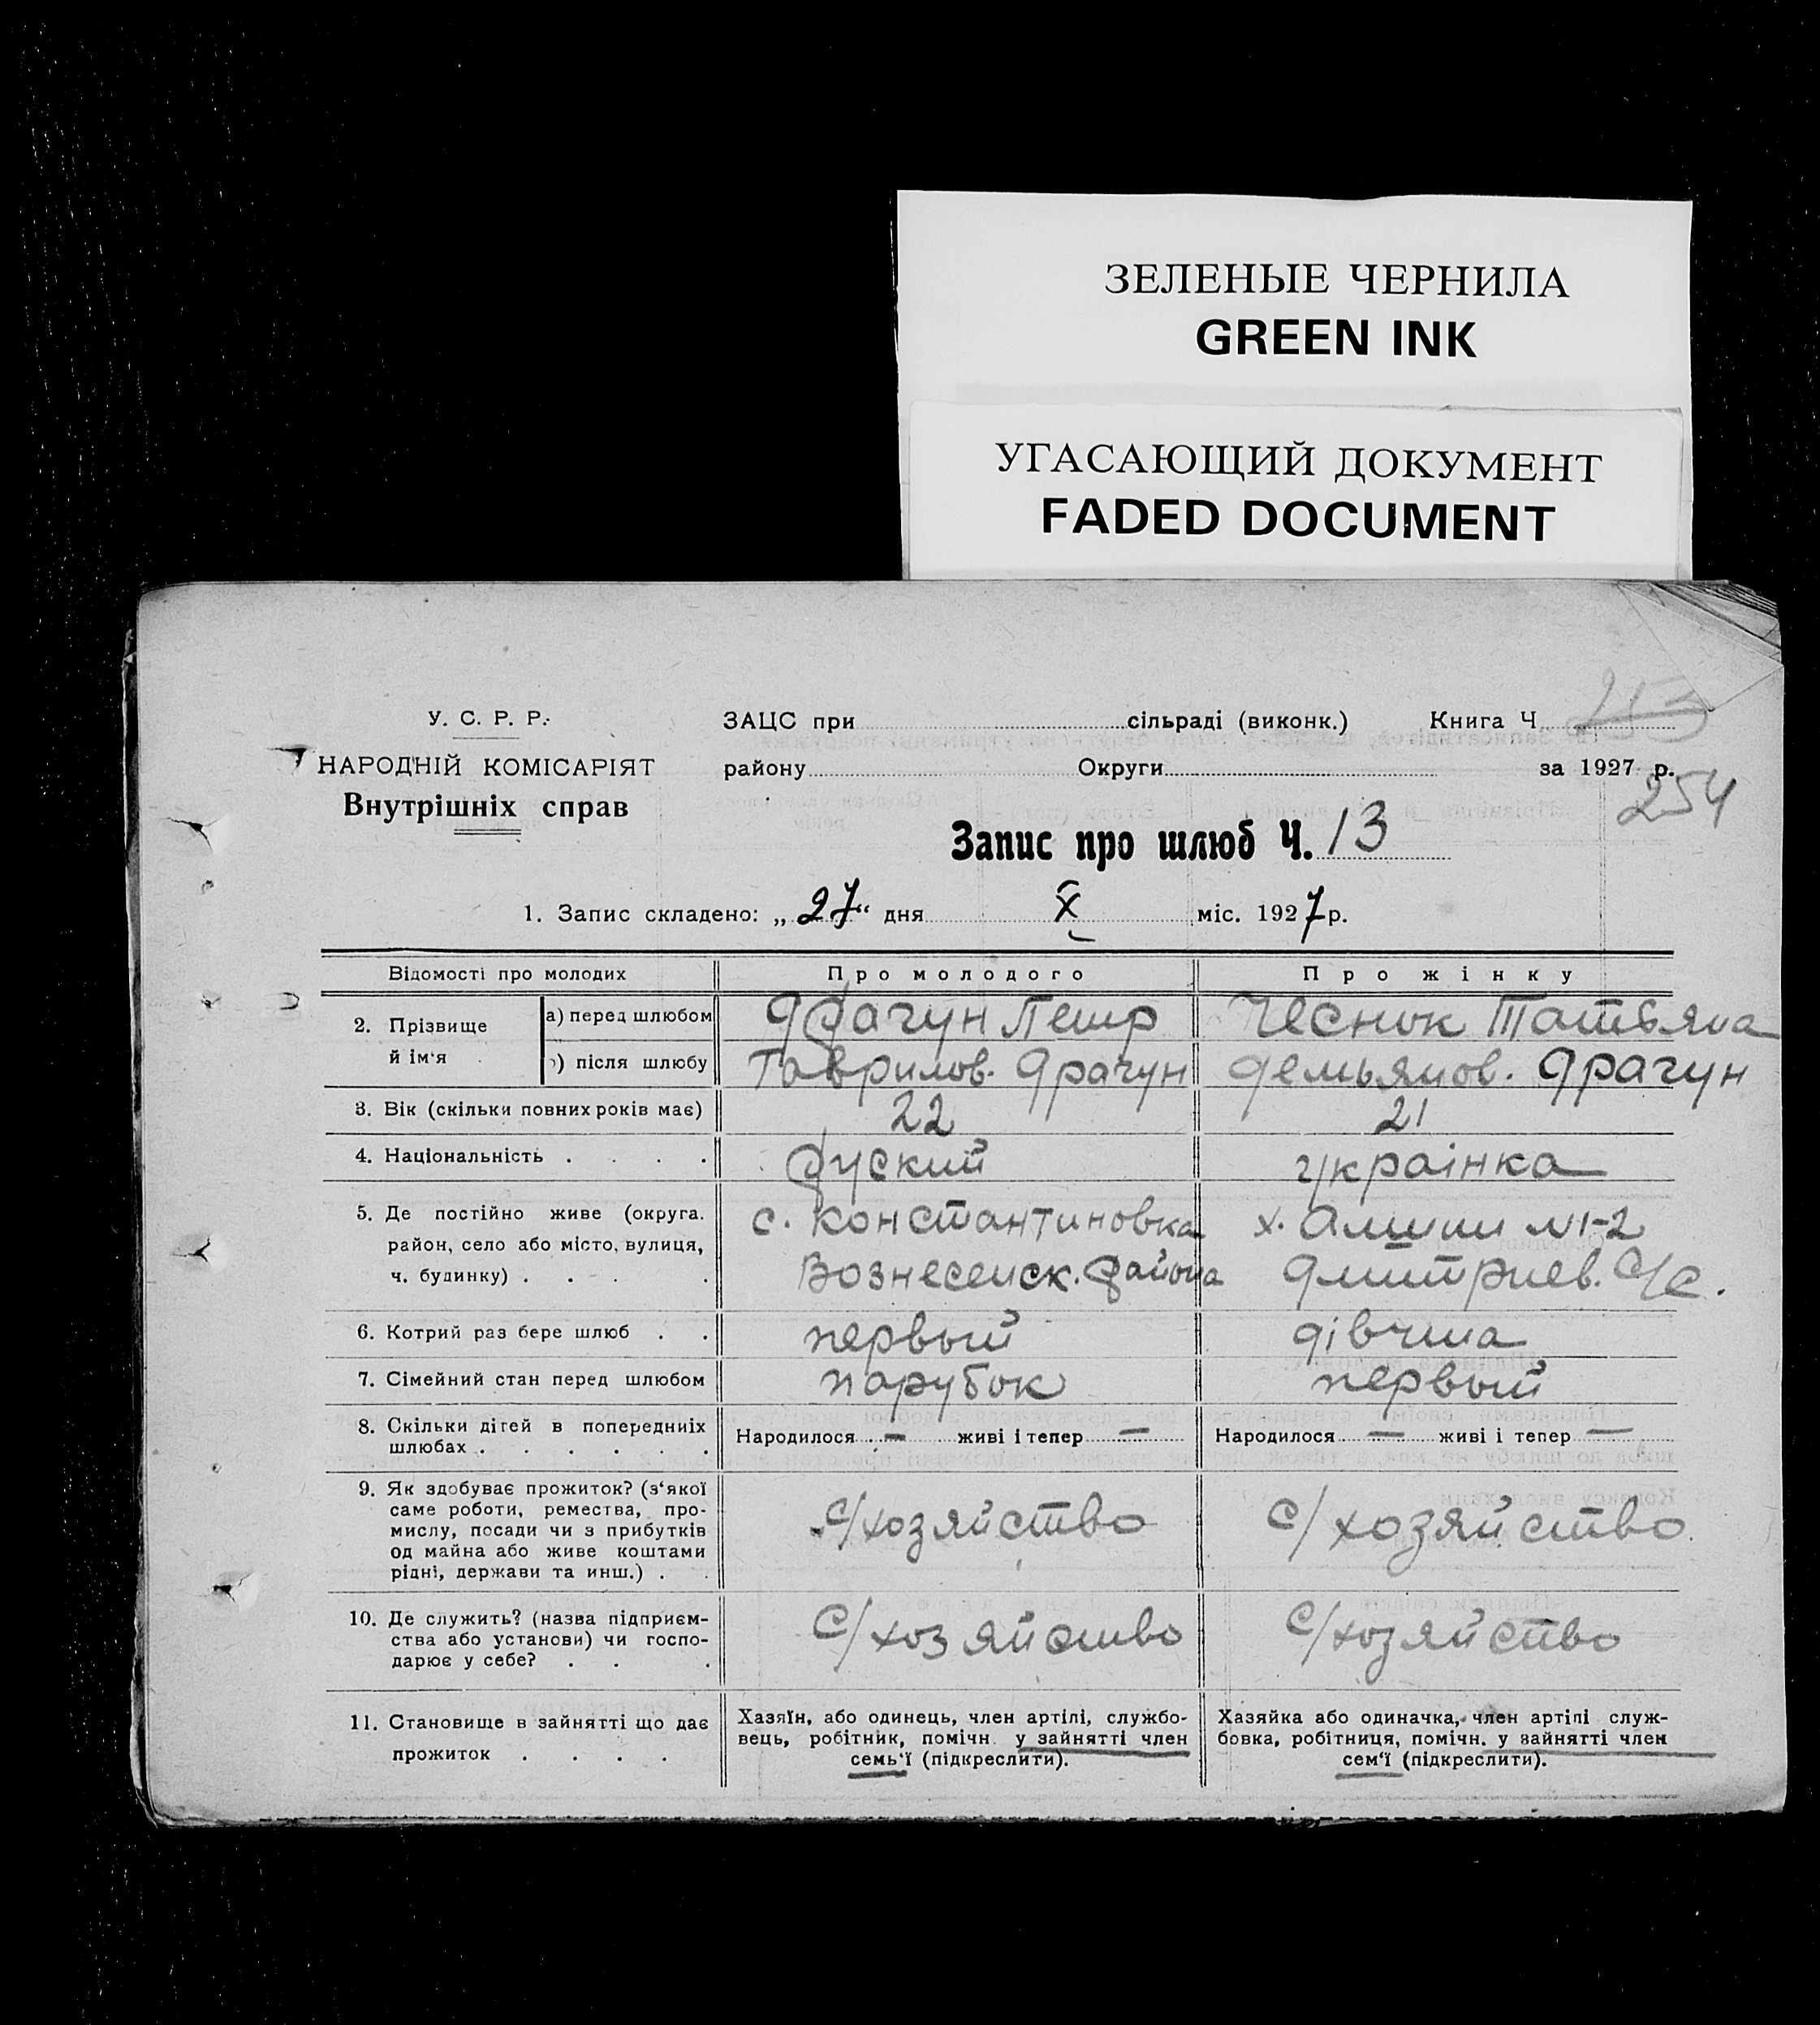 ЗЕЛЕНЫЕ ЧЕРНИЛА
GREEN INK
УГАСАЮЩИЙ ДОКУМЕНТ
FADED DOCUMENT
У. С. Р. Р.
НАРОДНІЙ КОМІСАРІЯТ
Внутрішніх справ
ЗАЦС при сільраді (виконк.) Книга Ч. 213
району Округи за 1927 р.
254
Запис про шлюб Ч. 13
1. Запис складено: „27“ дня X міс. 1927 р.
Відомості про молодих Про молодого Про жінку
2. Прізвище й ім‘я
а) перед шлюбом Драчун Петр Чеснок Татьяна
б) після шлюбу Гаврилов. Драчун Демьянов. Драчун
3. Вік (скільки повних років має) 22 21
4. Національність . . . . руский українка
5. Де постійно живе (округа. с. Константиновка х.
район, село або місто, вулиця,
ч. будинку) . . . . Вознесенск. района Дмитриев. С/с.
6. Котрий раз бере шлюб . . первый дівчина
7. Сімейний стан перед шлюбом парубок первый
8. Скільки дітей в попередниіх
шлюбах . . . . . . Народилося — живі і тепер — Народилося — живі і тепер —
9. Як здобуває прожиток? (з‘якої
саме роботи, ремества, про-
мислу, посади чи з прибутків
од майна або живе коштами
рідні, держави та инш.) . . с/хозяйство с/хозяйство
10. Де служить? (назва підприєм-
ства або установи) чи госпо-
дарює у себе? . . . с/хозяйство с/хозяйство
11. Становище в зайнятті що дає
прожиток . . . .
Хазяїн, або одинець, член артілі, службо-
вець, робітник, помічн. у зайнятті член
семь‘ї (підкреслити).
Хазяйка або одиначка, член артілі служ-
бовка, робітниця, помічн. у зайнятті член
сем‘ї (підкреслити).